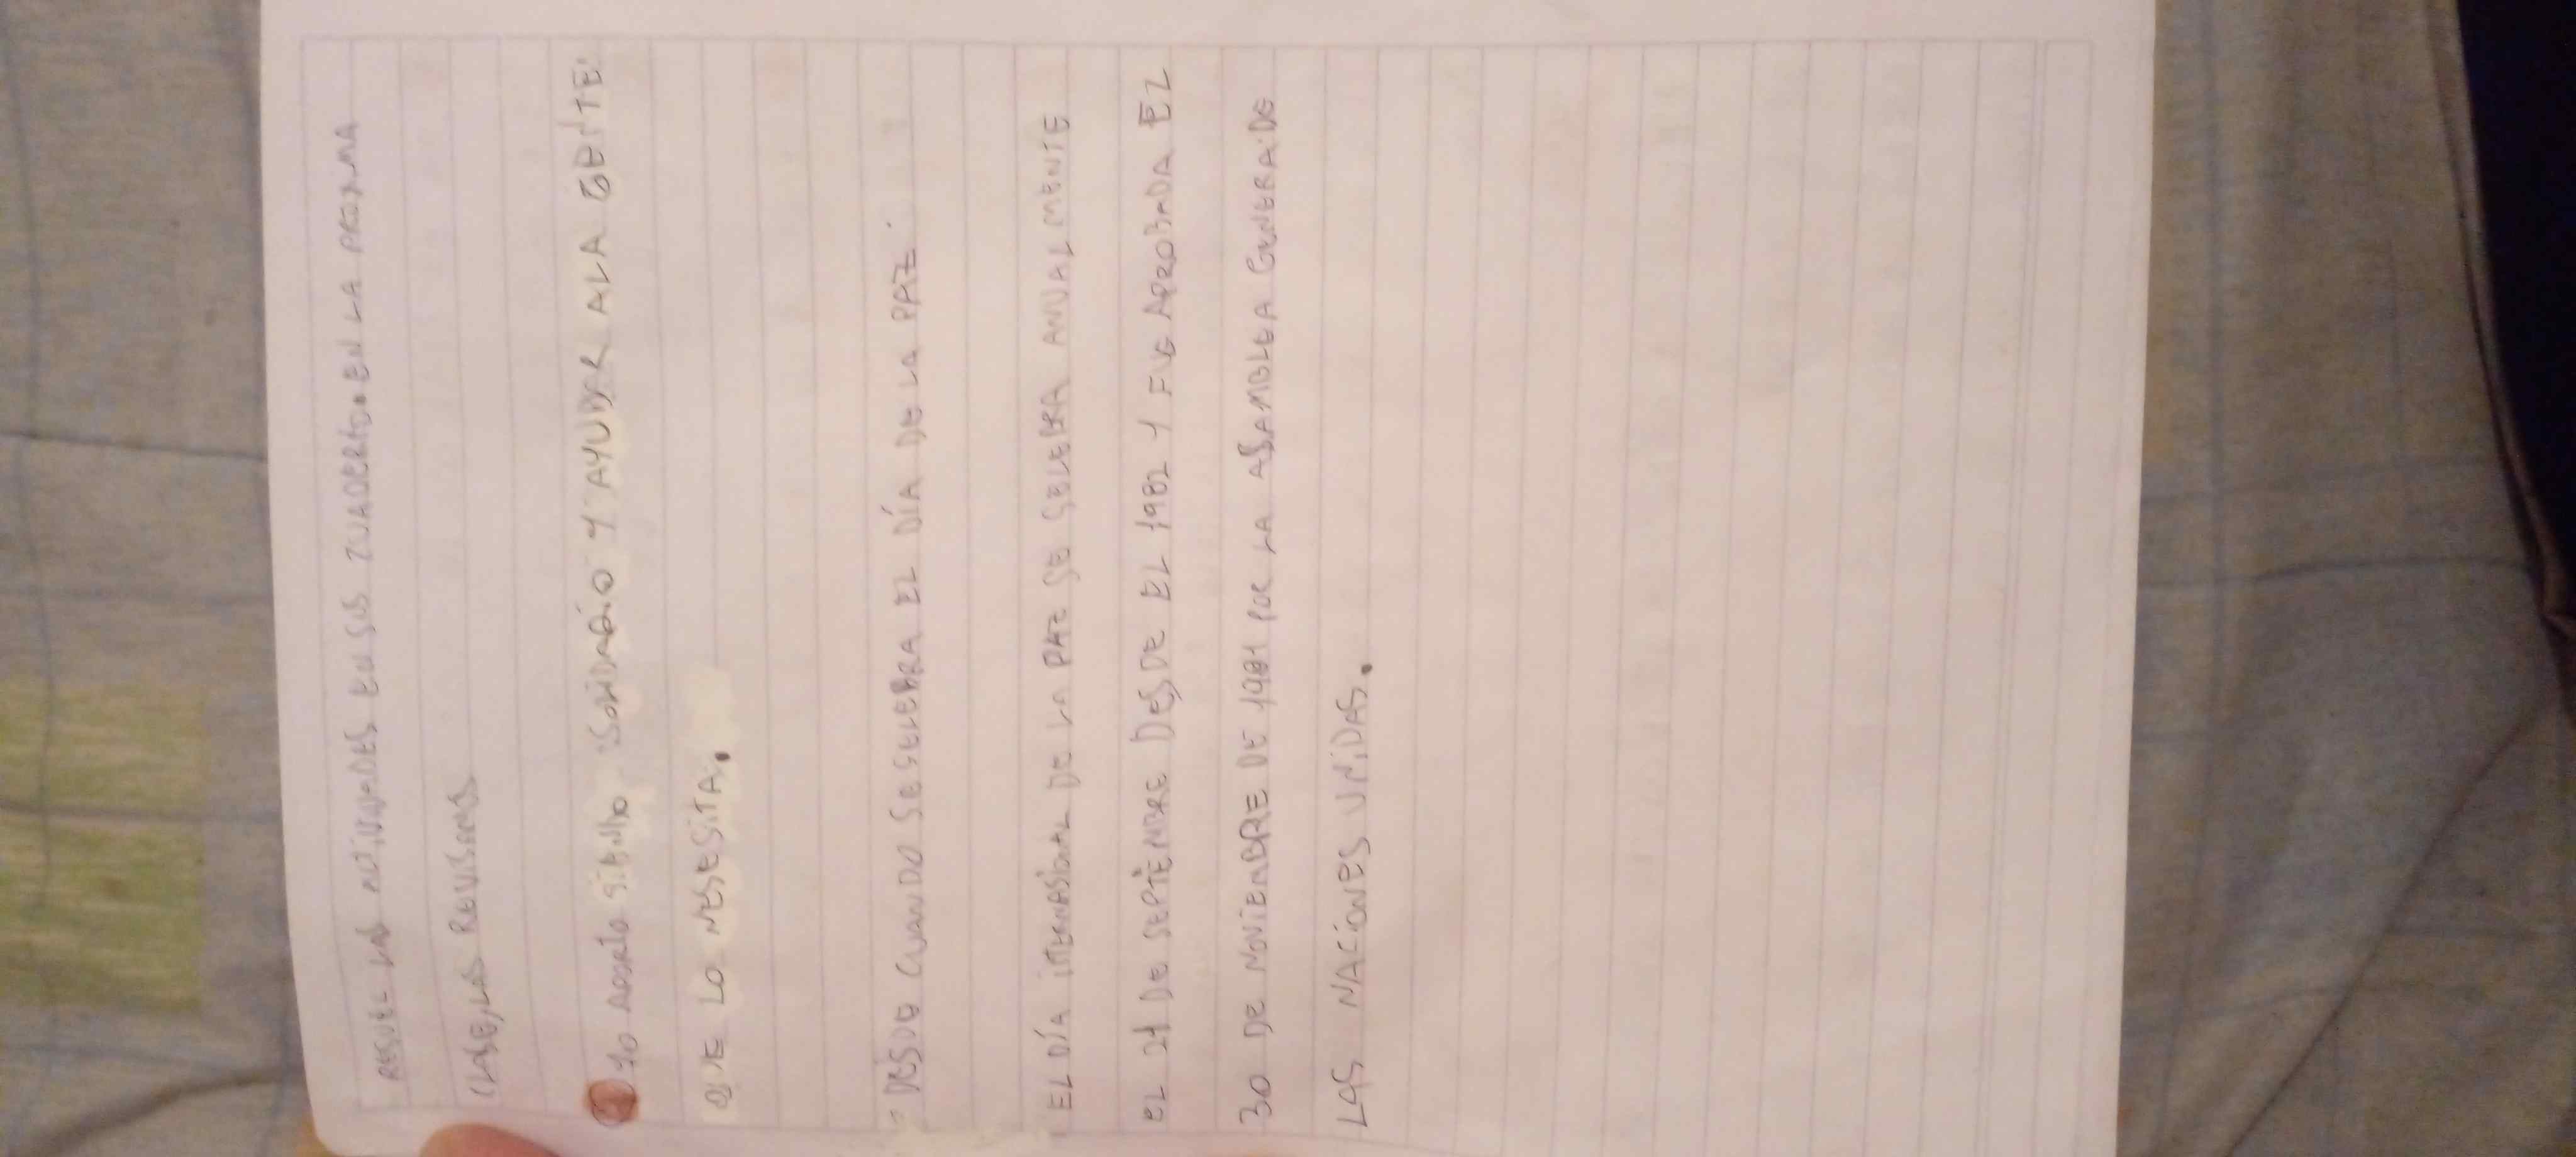 RESUEL LAS ACTIVIDADES EN SUS ZUADERTO. EN LA PROXIMA
CLASE, LAS REVISAMOS
YO APORTO SIENDO SOLIDARIO Y AYUDAR ALA GENTE
QUE LO NESESITA.
DESDE CUANDO SE SELEBRA EL DÍA DE LA PAZ.
EL DÍA INTERNASIONAL DE LA PAZ SE SELEBRA ANUALMENTE
EL 21 DE SEPTIEMBRE DESDE EL 1982 Y FUE APROBADA EL
30 DE NOVIEMBRE DE 1981 POR LA ASAMBLEA GENERAL DE
LAS NACIONES UNIDAS.